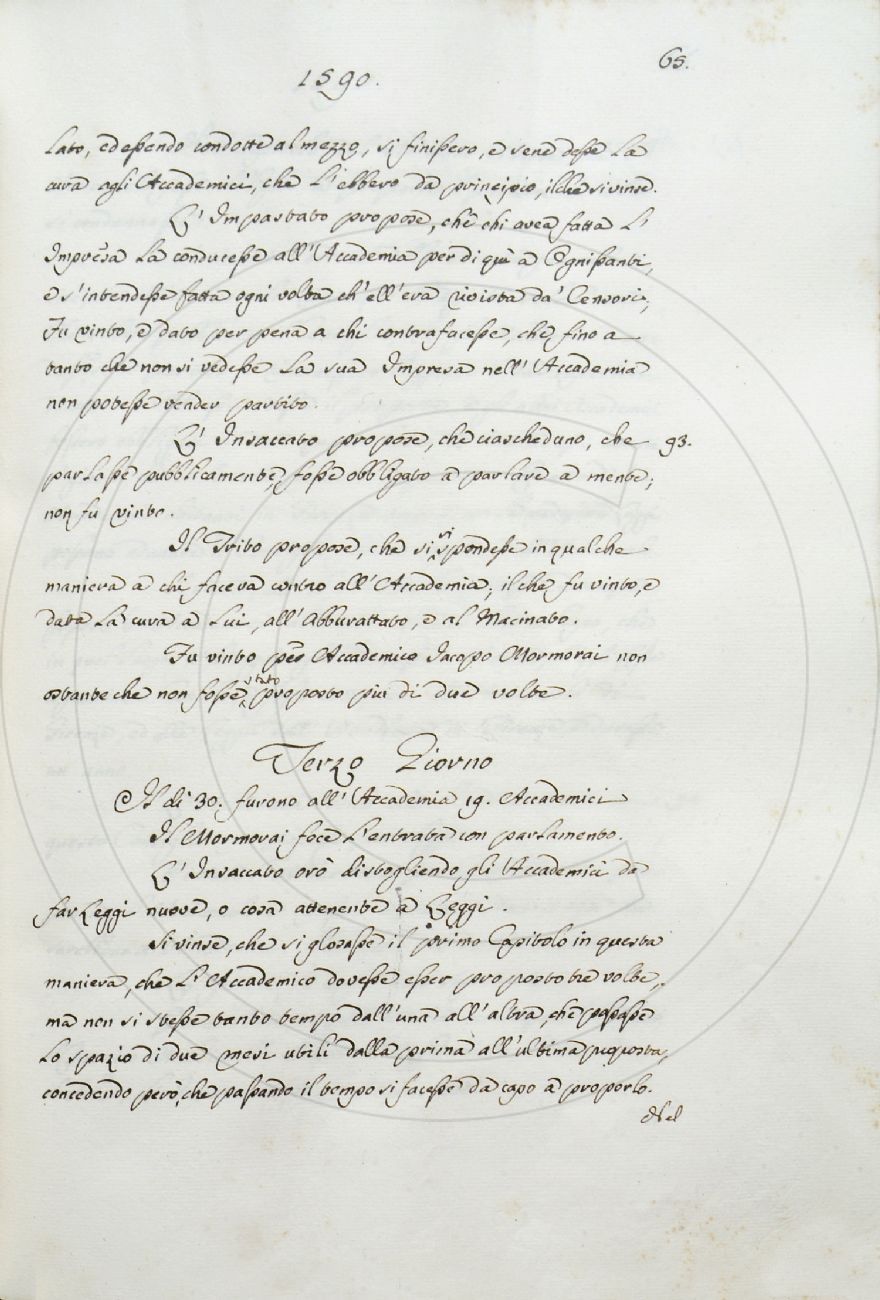 65.
1590.
lato, ed essendo condotte al mezzo, si finissero, e sene desse la
cura agli Accademici, che l'ebbero da principio, ilche si vinse.
L' Impastato propose, che chi avea fatta l'
Impresa la conducesse all'Accademia per di quì a Ognissanti,
e s'intendesse fatta ogni volta ch'ell'era rivista da' Censori;
Fu vinto, e dato per pena a chi contrafacesse, che fino a
tanto che non si vedesse la sua Impresa nell'Accademia
non potesse render partito.
L' Insaccato propose, che ciascheduno, che 93.
parlasse pubblicamente, fosse obbligato a parlare a mente;
non fu vinto.
Il Trito propose, che si rispondesse in qualche
maniera a chi faceva contro all'Accademia; ilche fu vinto, e
data la cura a lui, all'Abburattato, e al Macinato.
Fu vinto per Accademico Jacopo Mormorai non
ostante che non fosse stato proposto più di due volte.
Terzo Giorno
A dì 30. furono all'Accademia 19. Accademici
Il Mormorai fece l'entrata con parlamento.
L' Insaccato orò distogliendo gli Accademici da
far Leggi nuove, o cosa attenente a Leggi.
Si vinse, che si glosasse il primo Capitolo in questa
maniera, che l'Accademico dovesse esser proposto tre volte,
ma non si stesse tanto tempo dall'una all'altra, che passasse
lo spazio di due mesi utili dalla prima all'ultima proposta,
concedendo però, che passando il tempo si facesse da capo a proporlo.
Nel